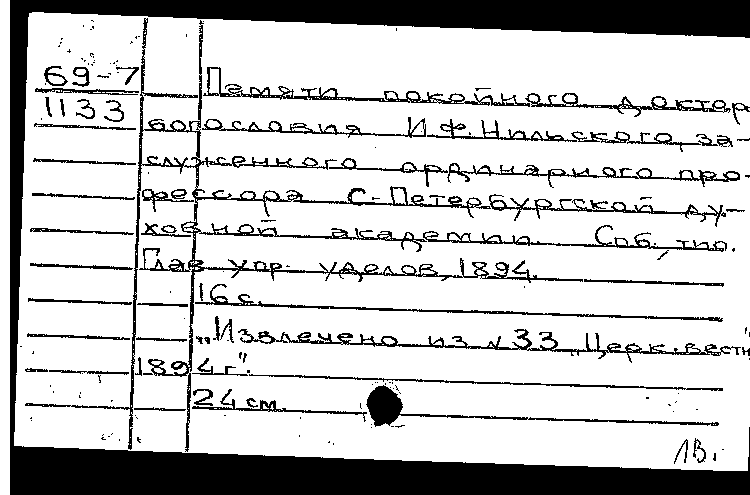 69-7
1133
Памяти покойного доктор
богословия И.Ф. Нильского, за-
служенного ординарного про-
фессора С-Петербургской ду-
ховной академии. Спб., тип.
Глав. упр. уделов, 1894.
16 с.
"Извлечено из № 33 "Церк. вестн"
1894 г".
24 см.
1В.